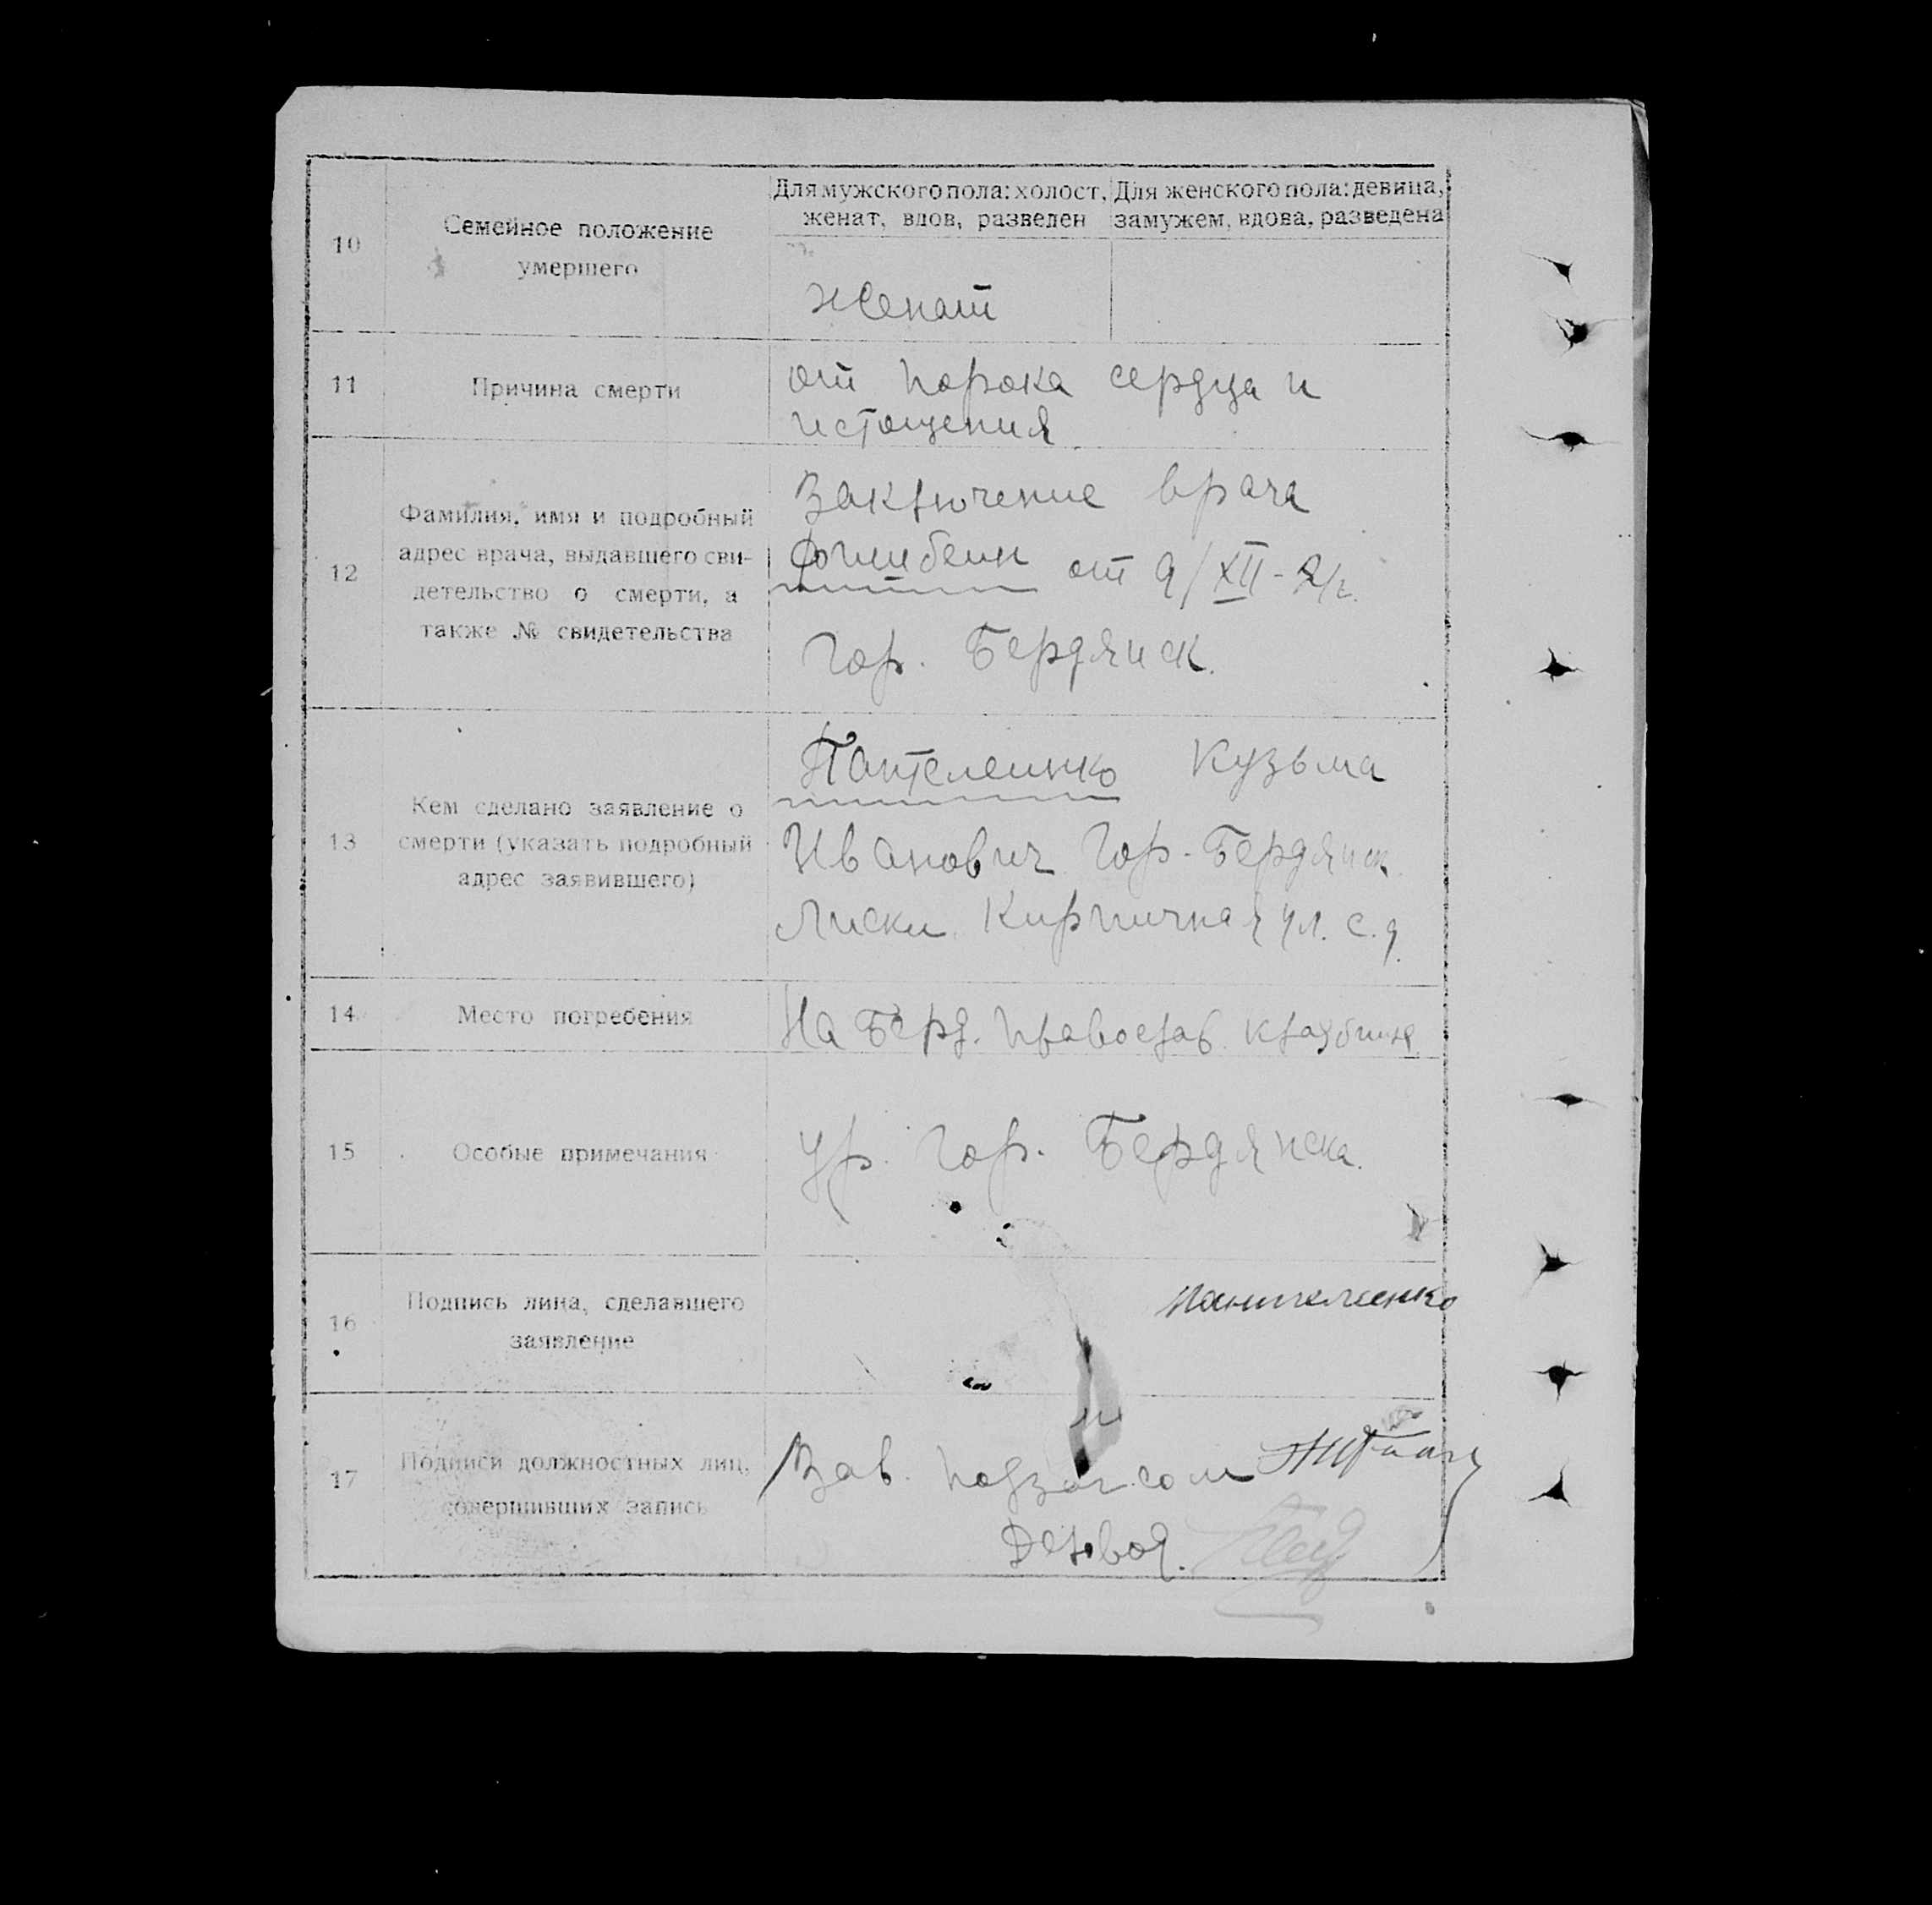 Для мужского пола: холост, женат, вдов, разведен
Для женского пола: девица, замужем, вдова, разведена
10
Семейное положение
умершего
женат
11
Причина смерти
от порока сердца и
истощения
12
Фамилия, имя и подробный
адрес врача, выдавшего сви-
детельство о смерти, а
также № свидетельства
Заключение врача
от 9/XII-
Гор. Бердянск.
13
Кем сделано заявление о
смерти (указать подробный
адрес заявившего)
Пантелеенко Кузьма
Иванович Гор. Бердянск
Лиски Кирпичная ул. с.д.
14
Место погребения
На Берд. православ. кладбище
15
Особые примечания
Ур. гор. Бердянска.
16
Подпись лица, сделавшего
заявление
Пантелеенко
17
Подписи должностных лиц,
совершивших запись
Зав. подзагсом
Делвод.